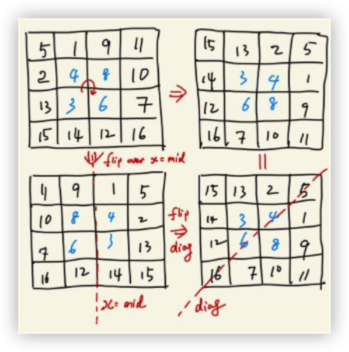 5 1 9 11
2 4 8 10
13 3 6 7
15 14 12 16
15 13 2 5
14 3 4 1
12 6 8 9
16 7 10 11
flip over x=mid
11 9 1 5
10 8 4 2
7 6 3 13
16 12 14 15
x=mid
flip
diag
15 13 2 5
14 3 4 1
12 6 8 9
16 7 10 11
diag